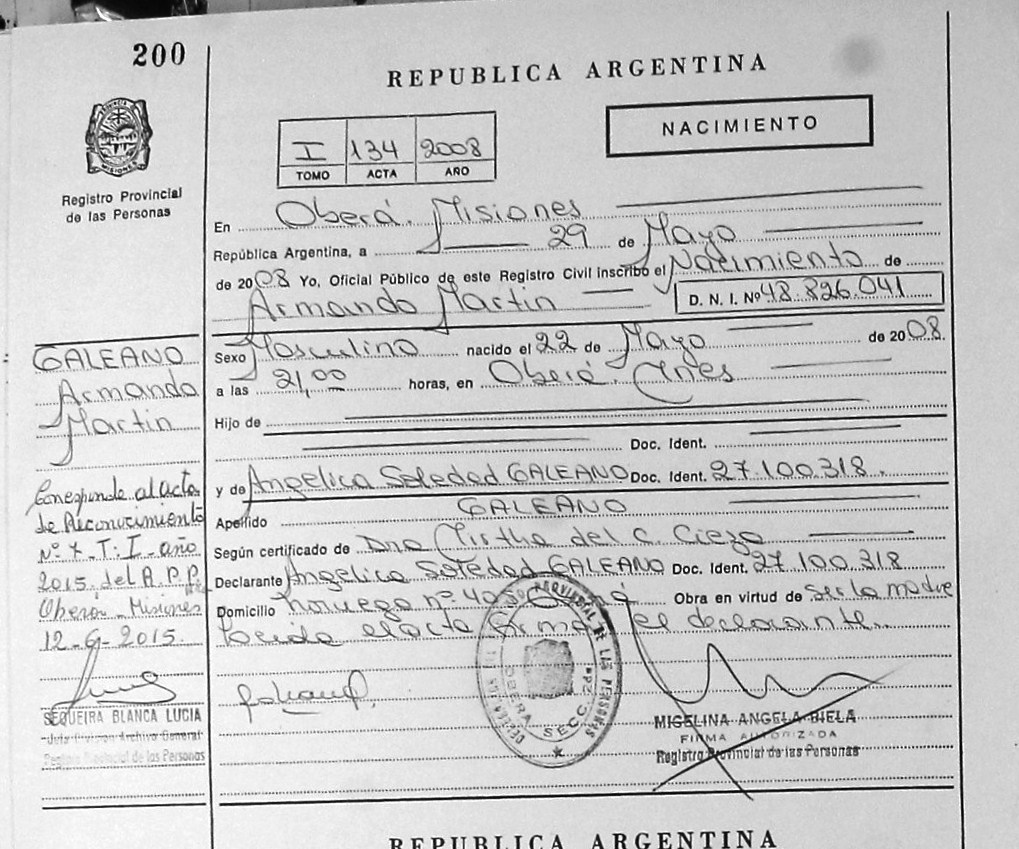 200
REPUBLICA ARGENTINA
NACIMIENTO
PROVINCIA DE MISIONES
Registro Provincial
de las Personas
I 134 2008
TOMO ACTA AÑO
En Oberá. Misiones
República Argentina, a 29 de Mayo
de 2008 Yo, Oficial Público de este Registro Civil inscribo el Nacimiento de
Armando Martin D. N. I. Nº 48.826.041
Sexo Masculino nacido el 22 de Mayo de 2008.
a las 21,00 horas, en Oberá. Mnes
Hijo de
Doc. Ident.
y de Angelica Soledad GALEANO Doc. Ident. 27.100.318.
Apellido GALEANO
Según certificado de Dra Mirtha del C.
Declarante Angelica Soledad GALEANO Doc. Ident. 27.100.318
Domicilio noruega nº Obra en virtud de ser la madre
el acta firma el declarante.
GALEANO
Armando
Martin
Corresponde al acta
de Reconocimiento
Nº T: I - año
2015. del R.P.P.
Oberá - Misiones
12-6-2015.
SEQUEIRA BLANCA LUCIA
Jefa Division Archivo General
Registro Provincial de las Personas
PROVINCIAL DE LAS PERSONAS
OBERA SECC. 2da
MIGELINA ANGELA BIELA
FIRMA AUTORIZADA
Registro Provincial de las Personas
REPUBLICA ARGENTINA